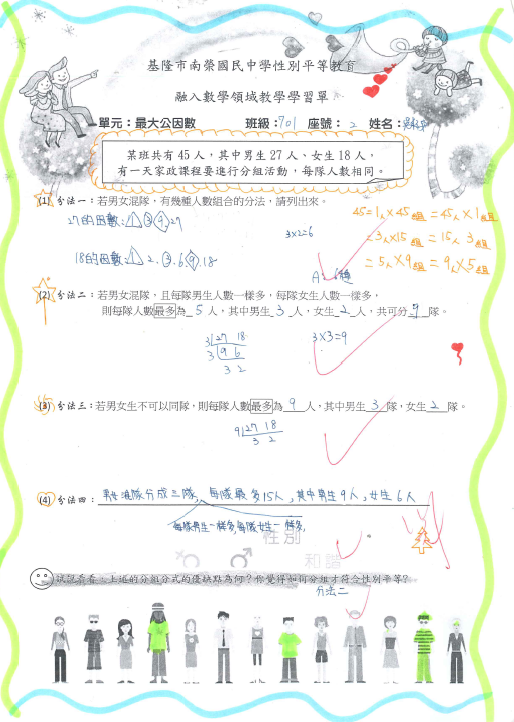 基隆市南榮國民中學性別平等教育
融入數學領域教學學習單
單元：最大公因數 班級：701 座號： 2 姓名：
某班共有 45 人，其中男生 27 人、女生 18 人，
有一天家政課程要進行分組活動，每隊人數相同。
(1) 分法一：若男女混隊，有幾種人數組合的分法，請列出來。
27的因數：1 3 9, 27
3x2=6
45=1人x45組=45人x1組
=3人x15組=15人 3組
=5人x9組=9人x5組
18的因數：1 2. 3. 6. 9. 18
A：6種
(2) 分法二：若男女混隊，且每隊男生人數一樣多，每隊女生人數一樣多，
則每隊人數最多為 5 人，其中男生 3 人，女生 2 人，共可分 9 隊。
3 27 18
3 9 6
3 2
3x3=9
(3) 分法三：若男女生不可以同隊，則每隊人數最多為 9 人，其中男生 3 隊，女生 2 隊。
9 27 18
3 2
(4) 分法四：男女混隊分成三隊，每隊最多15人，其中男生9人，女生6人
每隊男生一樣多，每隊女生一樣多，
性別
和諧
試說看看，上述的分組分式的優缺點為何？你覺得如何分組才符合性別平等？
分法二